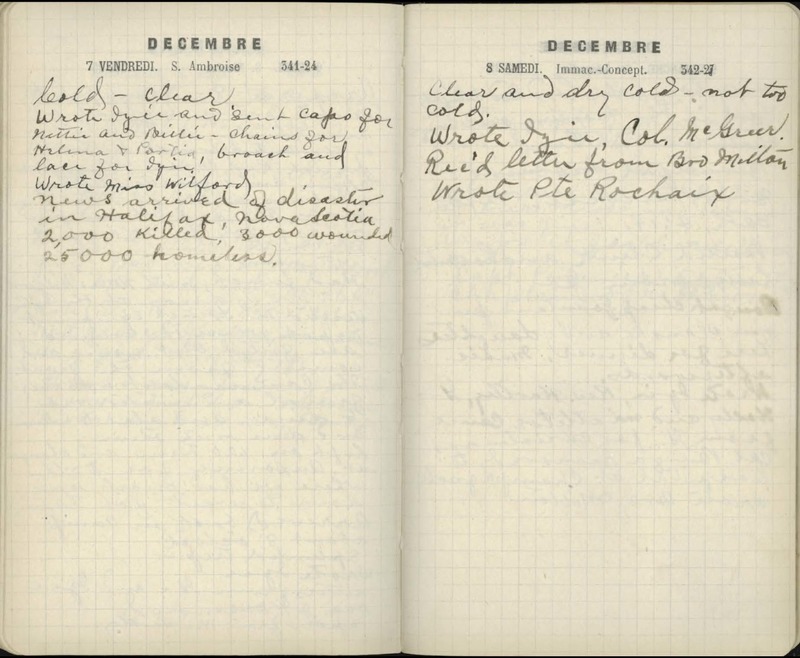 DECEMBRE
7 VENDREDI. S. Ambroise 341-24
Cold - clear
Wrote Izie and sent caps for
Nettie and Billie - chains for
Helena & Portia, broach and
lace for Izie.
Wrote Miss Wilford
News arrived of disaster
in Halifax, Nova Scotia
2,000 killed, 3000 wounded
25000 homeless.
DECEMBRE
8 SAMEDI. Immac.-Concept. 342-23
Clear and dry cold - not too
cold.
Wrote Izie, Col. McGreer.
Rec'd letter from Bro Milton
Wrote Pte Rochaix